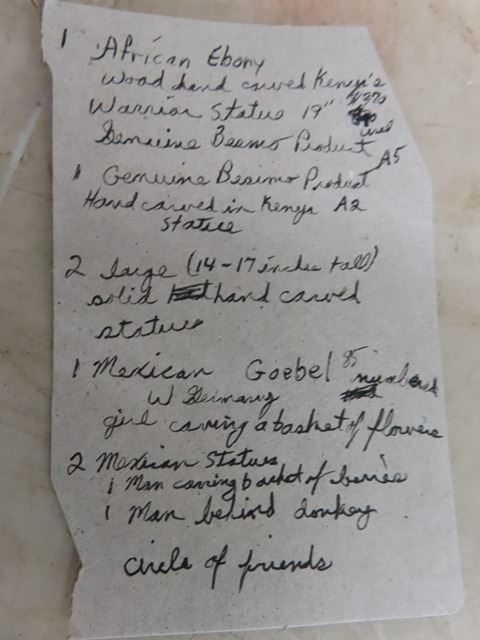 1 African Ebony
wood hand carved Kenya's
Warrior Status 19" #370
Genuine Besmo Product and
A5
1 Genuine Besmo Product
Hand carved in Kenya A2
Statue
2 large (14-17 inches tall)
solid hand carved
statues
1 Mexican Goebel 85 numbered
W Germany
girl carring a basket of flowers
2 Mexican Statues
1 Man carring basket of berries
1 Man behind donkey
circle of friends